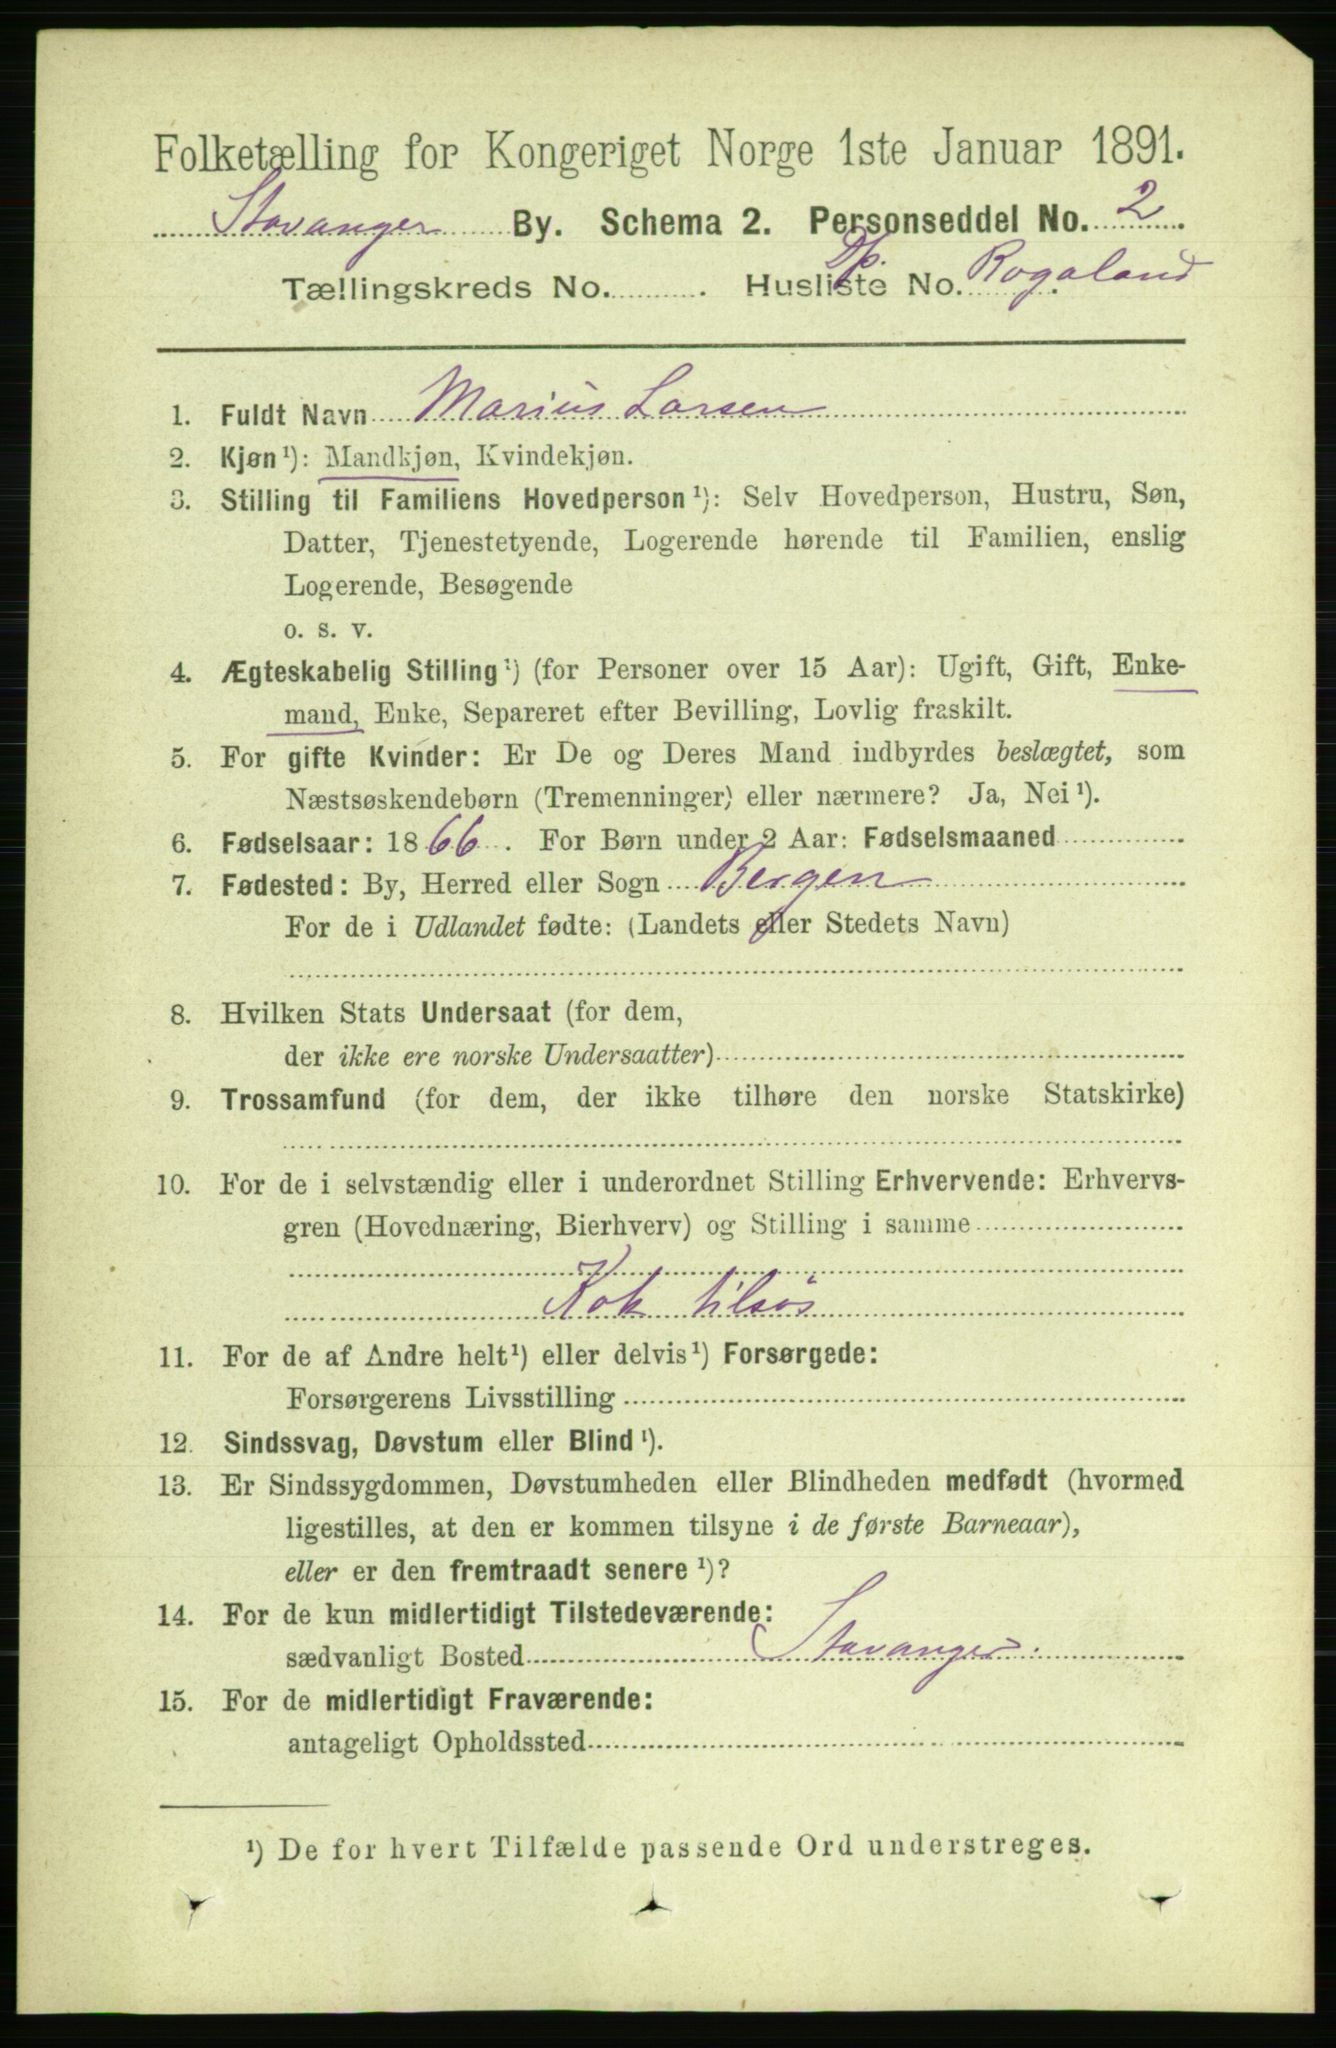 Folketælling for Kongeriget Norge 1ste Januar 1891.
Stavanger By. Schema 2. Personseddel No. 2
Tællingskreds No. Husliste No. Dp. Rogaland
1. Fuldt Navn Marius Larsen
2. Kjøn ¹): Mandkjøn, Kvindekjøn.
3. Stilling til Familiens Hovedperson ¹): Selv Hovedperson, Hustru, Søn,
Datter, Tjenestetyende, Logerende hørende til Familien, enslig
Logerende, Besøgende
o. s. v.
4. Ægteskabelig Stilling ¹) (for Personer over 15 Aar): Ugift, Gift, Enke-
mand, Enke, Separeret efter Bevilling, Lovlig fraskilt.
5. For gifte Kvinder: Er De og Deres Mand indbyrdes beslægtet, som
Næstsøskendebørn (Tremenninger) eller nærmere? Ja, Nei ¹).
6. Fødselsaar: 1866. For Børn under 2 Aar: Fødselsmaaned
7. Fødested: By, Herred eller Sogn Bergen
For de i Udlandet fødte: (Landets eller Stedets Navn)
8. Hvilken Stats Undersaat (for dem,
der ikke ere norske Undersaatter)
9. Trossamfund (for dem, der ikke tilhøre den norske Statskirke)
10. For de i selvstændig eller i underordnet Stilling Erhvervende: Erhvervs-
gren (Hovednæring, Bierhverv) og Stilling i samme
Kok tilsøs
11. For de af Andre helt ¹) eller delvis ¹) Forsørgede:
Forsørgerens Livsstilling
12. Sindssvag, Døvstum eller Blind ¹).
13. Er Sindssygdommen, Døvstumheden eller Blindheden medfødt (hvormed
ligestilles, at den er kommen tilsyne i de første Barneaar),
eller er den fremtraadt senere ¹)?
14. For de kun midlertidigt Tilstedeværende:
sædvanligt Bosted Stavanger.
15. For de midlertidigt Fraværende:
antageligt Opholdssted
¹) De for hvert Tilfælde passende Ord understreges.